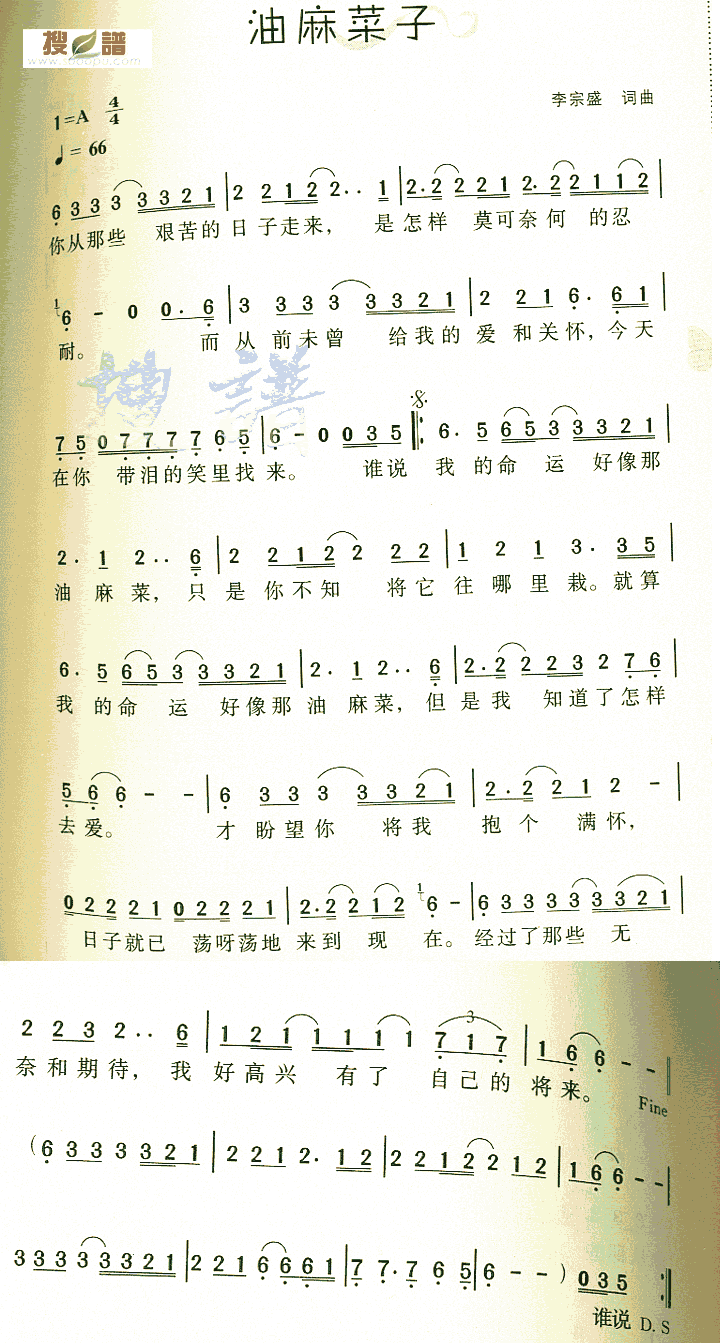 搜谱
www.sooopu.com
油麻菜子
1=A 4/4
李宗盛 词曲
♩= 66
6 3 3 3 3 3 2 1 | 2 2 1 2 2 2·· 1 | 2·2 2 2 1 2·2 2 1 1 2 |
你从那些 艰苦的日子走来， 是怎样 莫可奈何 的忍
1 6 - 0 0·6 | 3 3 3 3 3 3 2 1 | 2 2 1 6· 6 1 |
耐。 而从前未曾 给我的爱和关怀，今天
7 5 0 7 7 7 7 6 5 | 6 - 0 0 3 5 |: 6· 5 6 5 3 3 3 2 1 |
在你 带泪的笑里找来。 谁说 我的命运 好像那
2· 1 2·· 6 | 2 2 1 2 2 2 2 | 1 2 1 3· 3 5 |
油麻菜，只是你不知 将它往哪里栽。就算
6· 5 6 5 3 3 3 2 1 | 2· 1 2·· 6 | 2·2 2 2 3 2 7 6 |
我的命运 好像那油麻菜，但是我 知道了怎样
5 6 6 - - | 6 3 3 3 3 3 2 1 | 2·2 2 1 2 - |
去爱。 才盼望你 将我 抱个 满怀，
0 2 2 2 1 0 2 2 2 1 | 2·2 2 1 2 1 6 - | 6 3 3 3 3 3 3 2 1 |
日子就已 荡呀荡地来到现 在。经过了那些无
2 2 3 2·· 6 | 1 2 1 1 1 1 1 3 7 1 7 | 1 6 6 - - ‖
奈和期待，我好高兴 有了 自己的将来。 Fine
(6 3 3 3 3 2 1 | 2 2 1 2· 1 2 | 2 2 1 2 2 1 2 | 1 6 6 - - |
3 3 3 3 3 3 2 1 | 2 2 1 6 6 6 1 | 7 7·7 6 5 | 6 - - ) 0 3 5 :‖
谁说 D.S